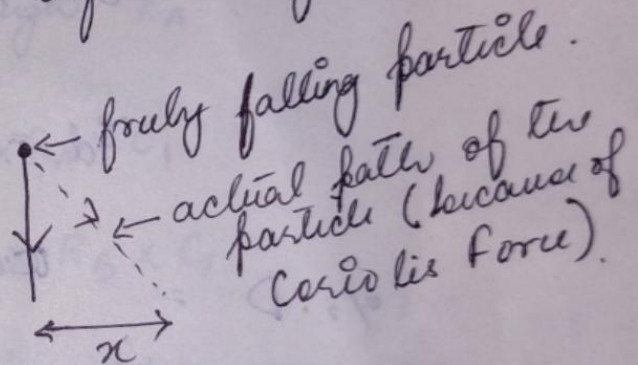 freely falling particle.
actual path of the
particle (because of
Coriolis Force).
x